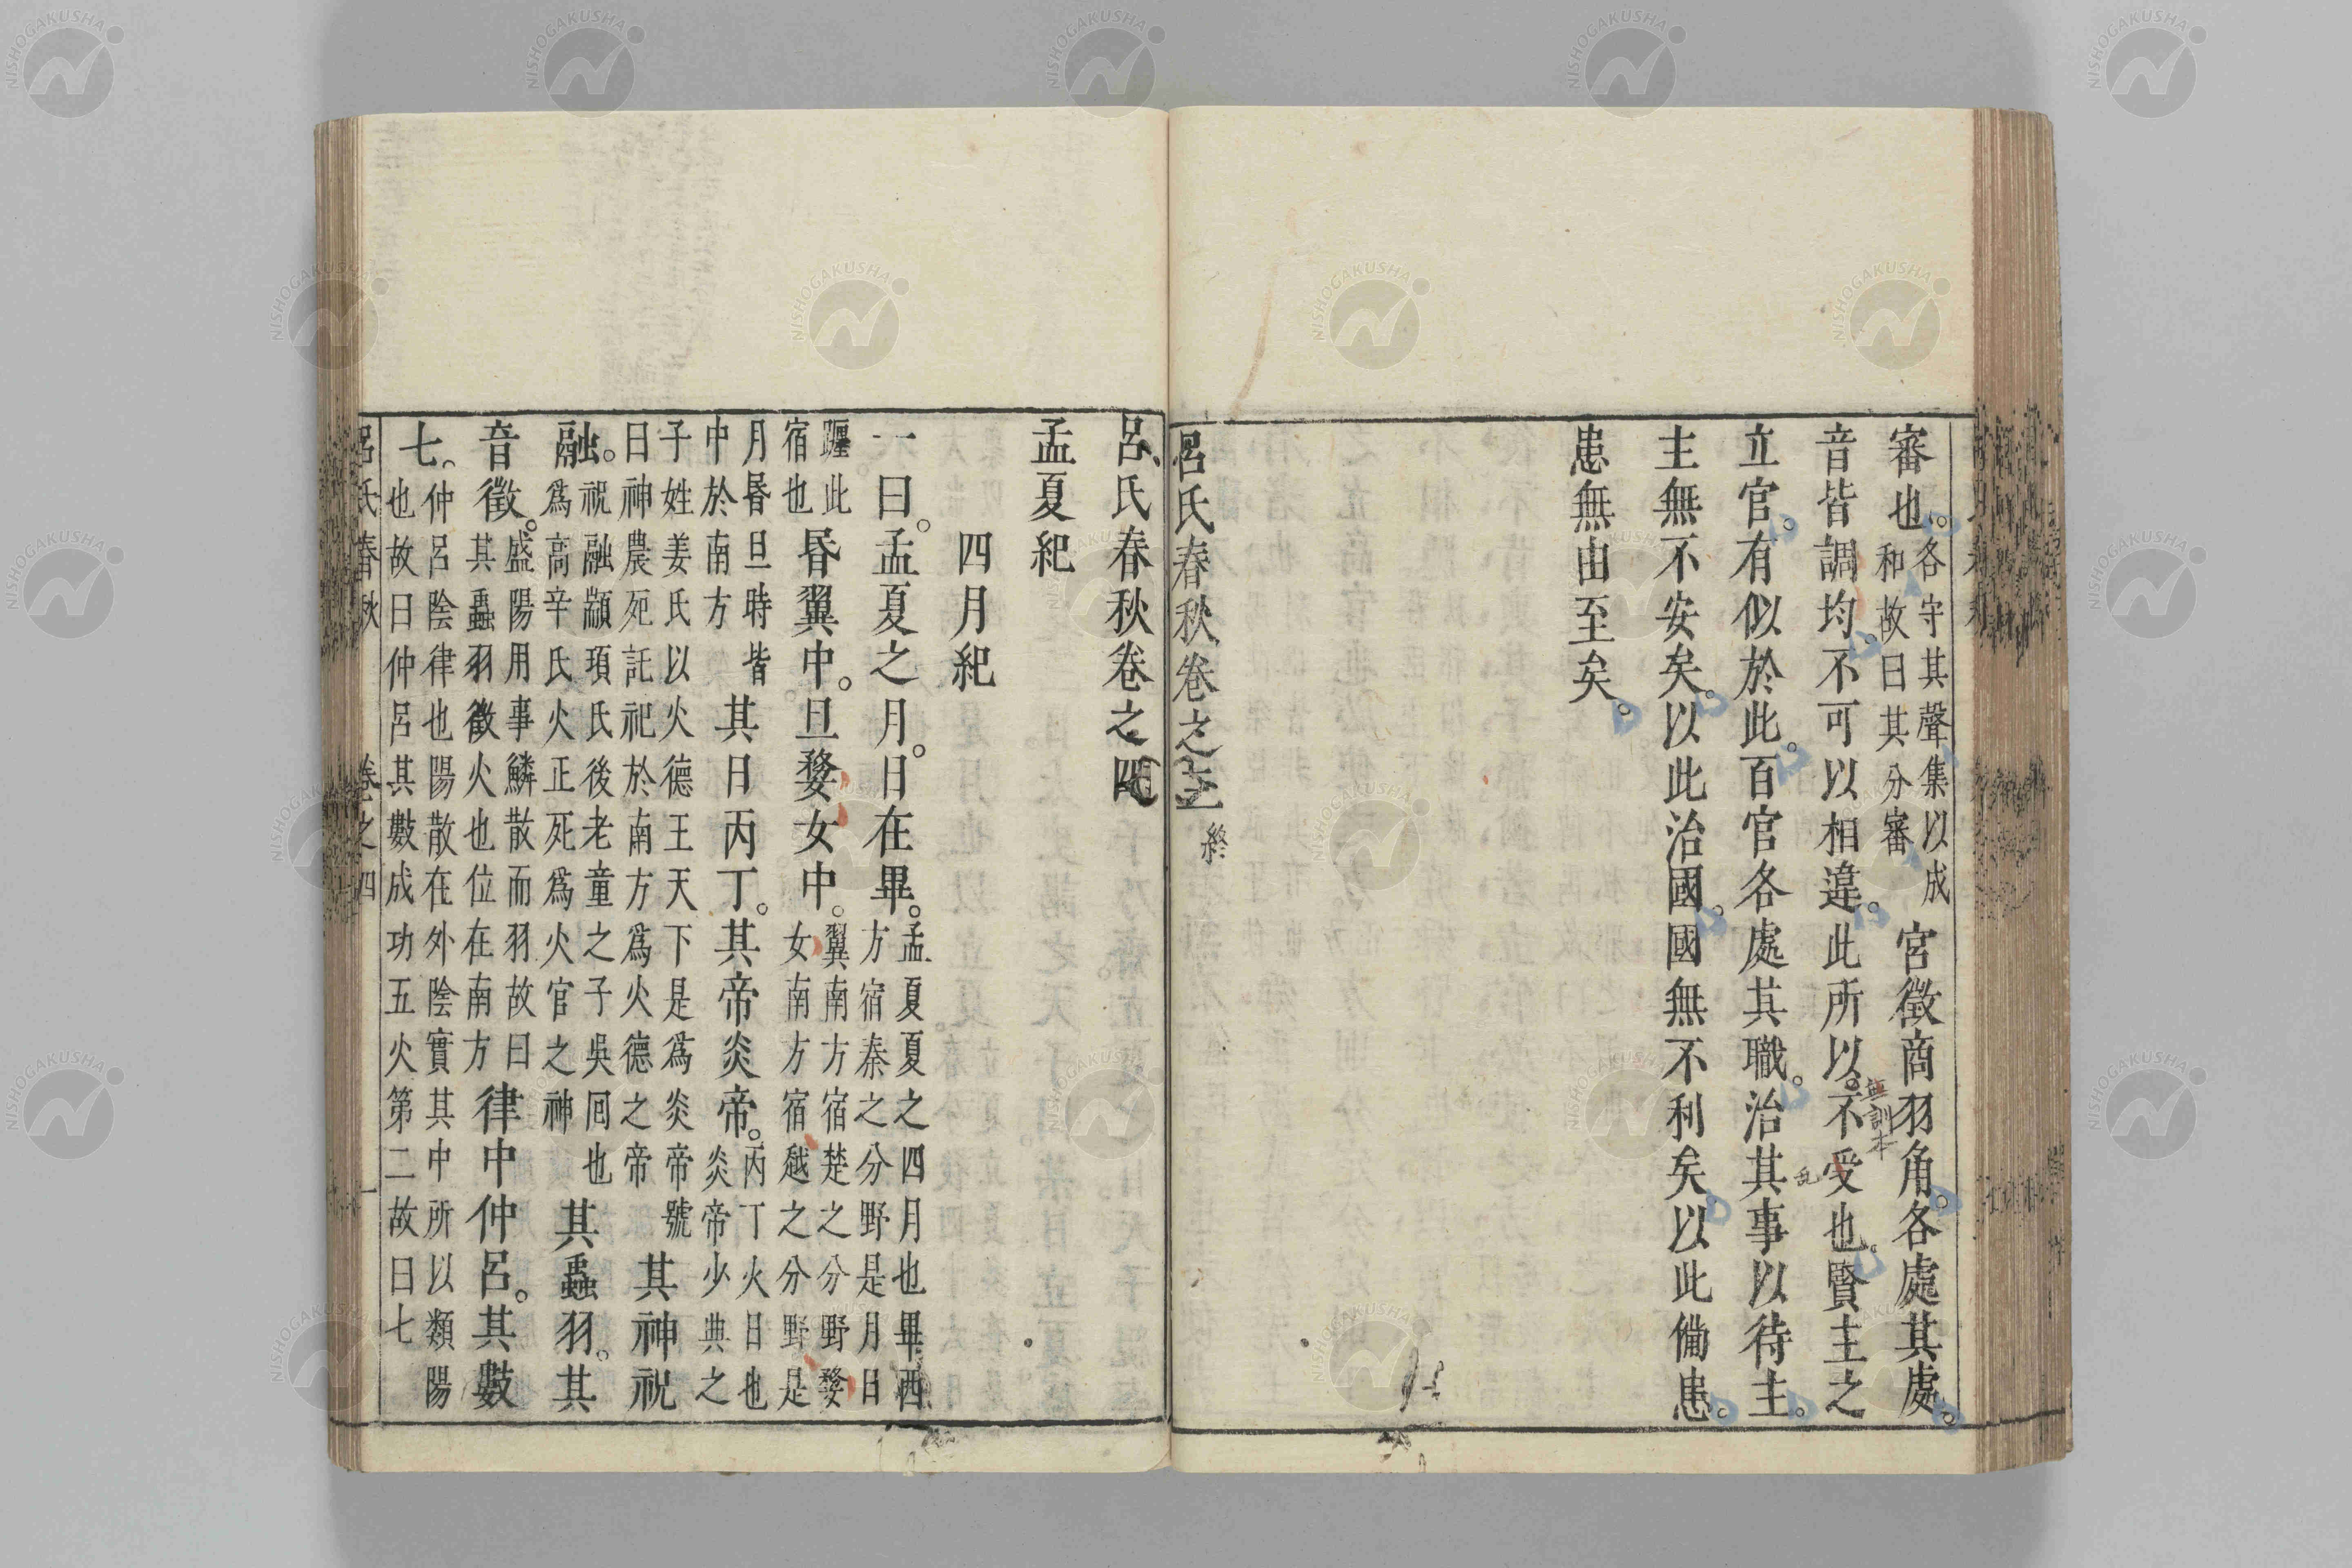 審也。各守其聲集以成和故曰其分審宮徵商羽角。各處其處。
音皆調均。不可以相違。此所以。不受也。賢主之
無訓本
立官。有似於此。百官各處其職。治其事以待主。
乱
主無不安矣。以此治國。國無不利矣。以此備患。
患無由至矣。
呂氏春秋卷之三終
呂氏春秋卷之四
孟夏紀
四月紀
一曰。孟夏之月。日在畢。孟夏夏之四月也畢西方宿秦之分野是月日
躔此宿也昬翼中。旦婺女中。翼南方宿楚之分野婺女南方宿越之分野是
月昬旦時皆中於南方其日丙丁。其帝炎帝。丙丁火日也炎帝少典之
子姓姜氏以火德王天下是為炎帝號曰神農死託祀於南方為火德之帝其神祝
融。祝融顓頊氏後老童之子吳囘也為高辛氏火正死為火官之神其蟲羽。其
音徵。盛陽用事鱗散而羽故曰其蟲羽徵火也位在南方律中仲呂。其數
七。仲呂陰律也陽散在外陰實其中所以類陽也故曰仲呂其數成功五火第二故曰七
呂氏春秋 卷之四 一
NISHOGAKUSHA